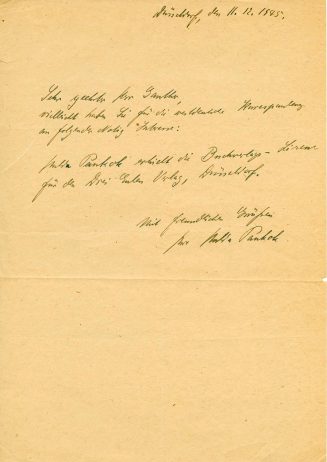 Düsseldorf, den 11. 12. 1945.
Sehr geehrter Herr Günther,
vielleicht haben Sie für die
an folgender Notiz Interesse:
Hulda Pankok erhielt die Buchverlags-Lizenz
für den Drei Eulen Verlag, Düsseldorf.
Mit freundlichen Grüßen
Ihre Hulda Pankok.